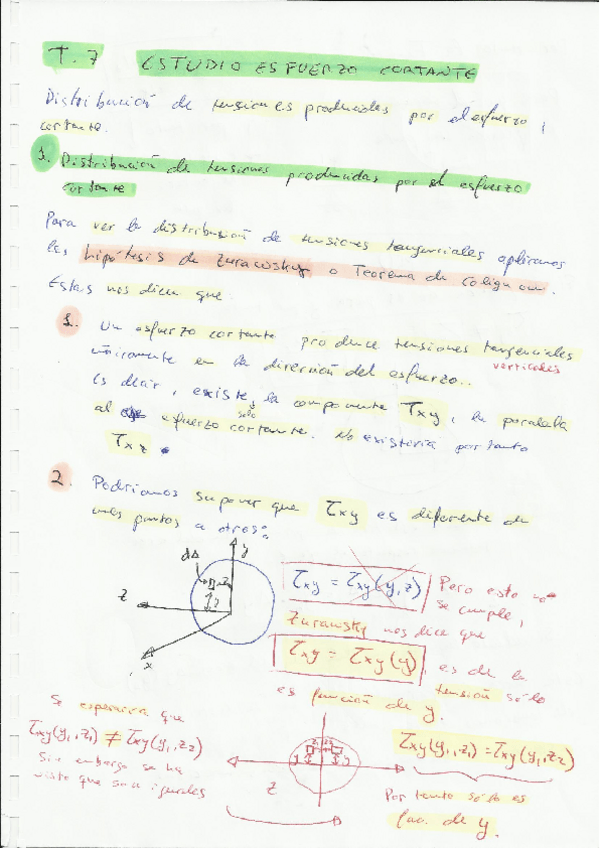 T.7 ESTUDIO ESFUERZO CORTANTE
Distribución de tensiones producidas por el esfuerzo
cortante.
1. Distribución de tensiones producidas por el esfuerzo
cortante
Para ver la distribución de tensiones tangenciales aplicamos
las hipótesis de Zurawsky o Teorema de Colignon.
Estas nos dice que
1. Un esfuerzo cortante produce tensiones tangenciales
verticales
únicamente en la dirección del esfuerzo..
Es decir, existe solo la componente τxy, la paralela
al esfuerzo cortante. No existiría por tanto
τxz.
2. Podríamos suponer que τxy es diferente de
unos puntos a otros:
dΔ
y
z
x
τxy = τxy(y,z)
Pero esto no
se cumple,
Zurawsky nos dice que
τxy = τxy(y), es de la
tensión sólo
es función de y.
Se esperaría que
τxy(y1,z1) ≠ τxy(y1,z2)
Sin embargo se ha
visto que son iguales
z1 z2
y y
z
τxy(y1,z1) = τxy(y1,z2)
Por tanto sólo es
func. de y.